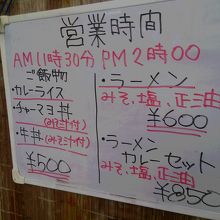 営業時間
AM11時30分 PM2時00
ご飯物
・カレーライス
・チャーマヨ丼
(みそ汁付)
・牛丼(みそ汁付)
¥500
・ラーメン
みそ,塩,正油
¥600
・ラーメン
カレーセット
みそ,塩,正油
¥850